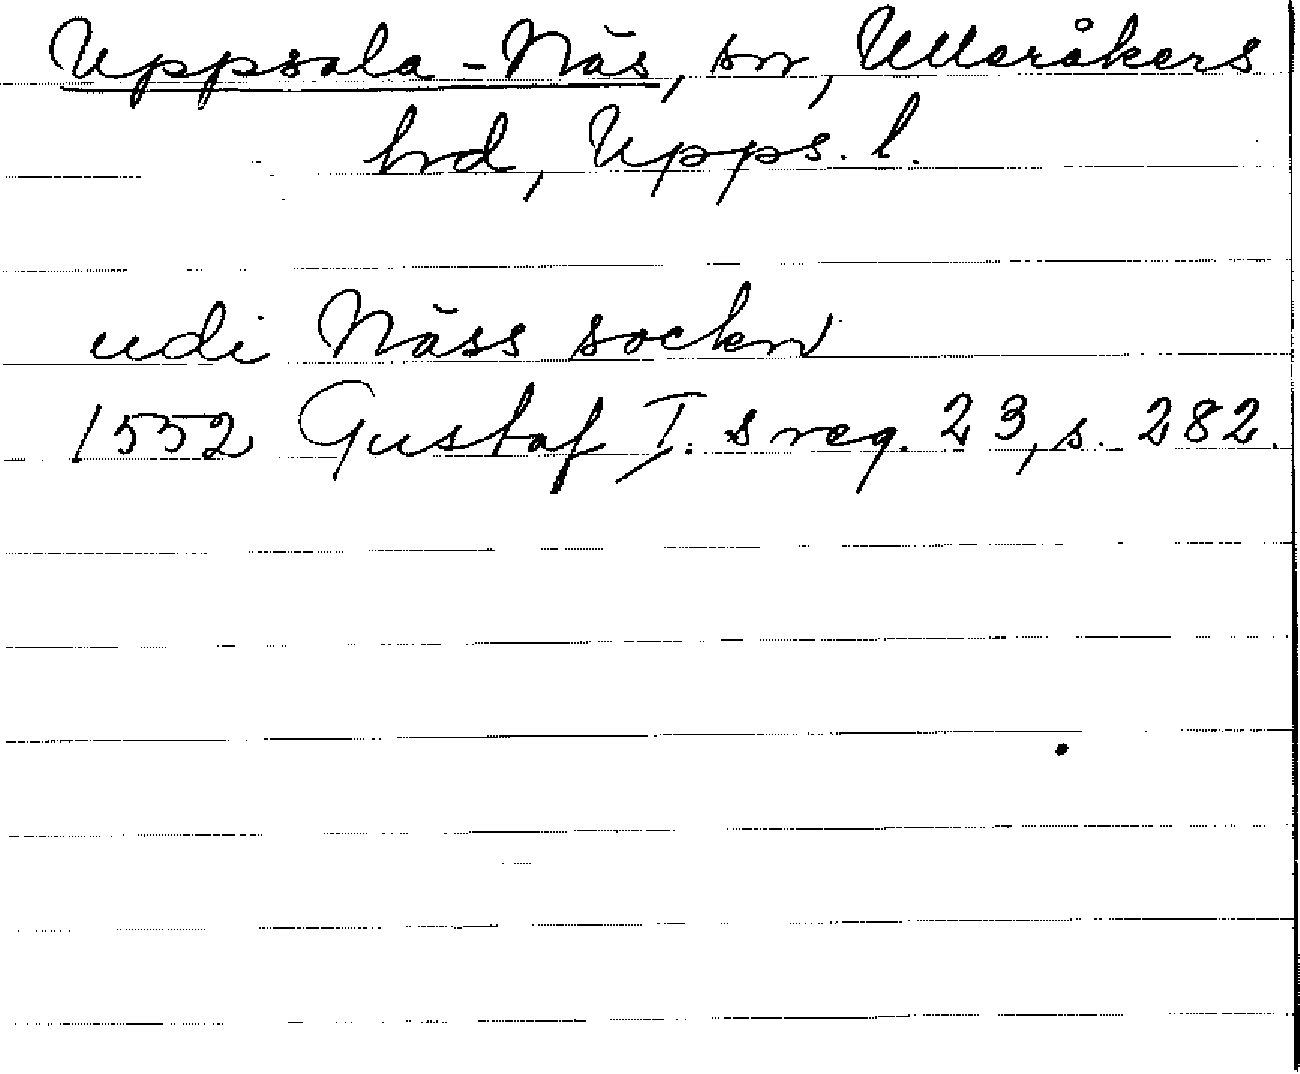 Uppsala-Näs, sn, Ulleråkers
hrd, Upps. l.
udi Näss sockn
1552 Gustaf I:s reg. 23, s. 282.